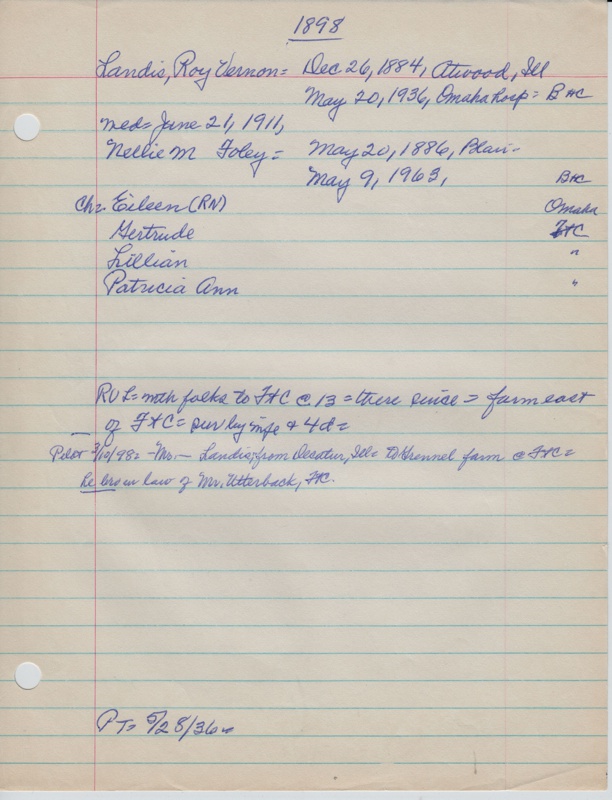 1898
Landis, Roy Vernon = Dec 26, 1884, Atwood, Ill
May 20, 1936, Omaha hosp = B HC
med = June 21, 1911,
Nellie M Foley = May 20, 1886, Blair -
May 9, 1963, B HC
Ch = Eileen (RN) Omaha
Gertrude FtC
Lillian "
Patricia Ann "
RVL = with folks to FtC @ 13 = there since = farm east
of FtC = sur by wife + 4d =
Pilot 3/10/98 = - Mr. - Landis, from Decatur, Ill = to Grennel farm @ FtC =
He bro in law of Mr. Utterback, FtC.
PT = 5/28/36